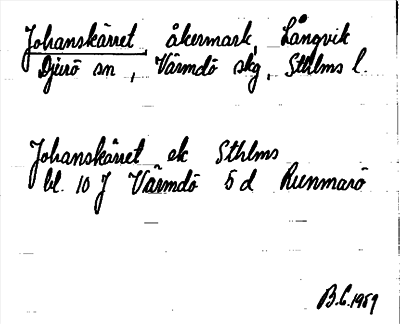 Johanskärret, åkermark, Långvik
Djurö sn, Värmdö skg, Sthlms l.
Johanskärret ek Sthlms
bl. 10 J Värmdö 5 d Runmarö
B.C. 1959